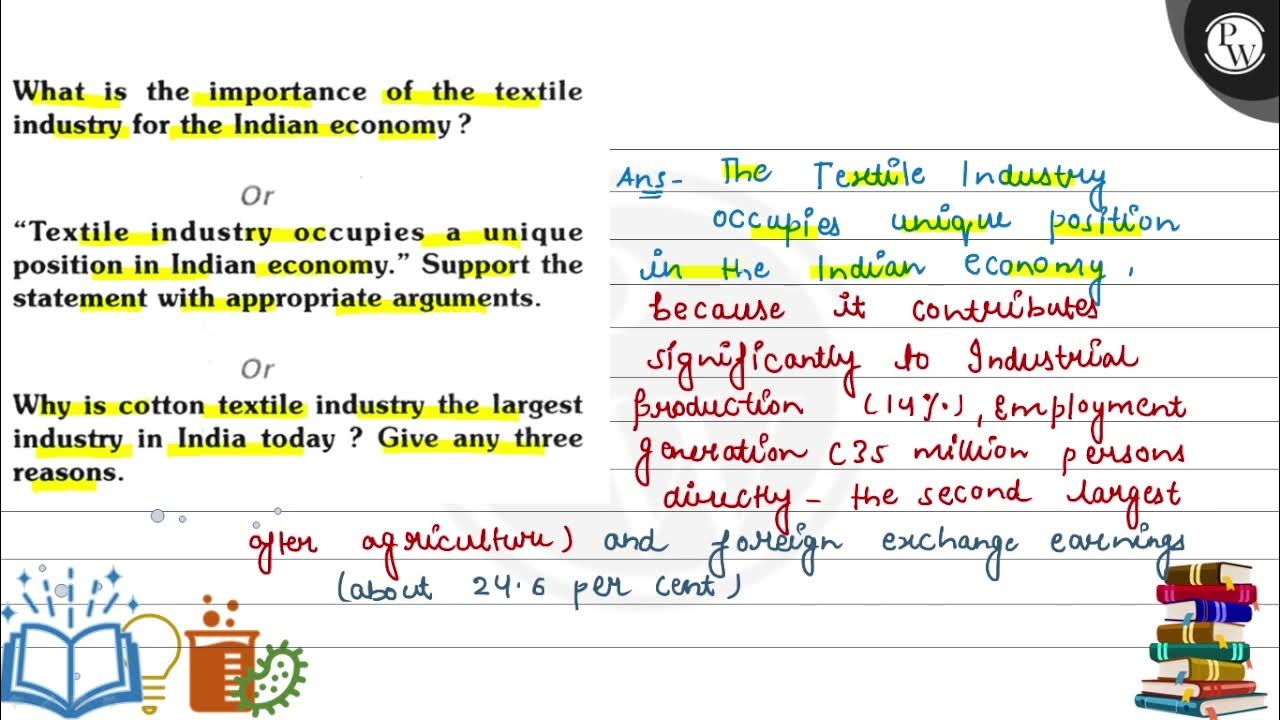 What is the importance of the textile
industry for the Indian economy ?
Or
“Textile industry occupies a unique
position in Indian economy.” Support the
statement with appropriate arguments.
Or
Why is cotton textile industry the largest
industry in India today ? Give any three
reasons.
PW
Ans- The Textile Industry
occupies unique position
in the Indian economy,
because it contributes
significantly to Industrial
production (14%), Employment
generation (35 million persons
directly - the second largest
after agriculture) and foreign exchange earnings
(about 24.6 per cent)